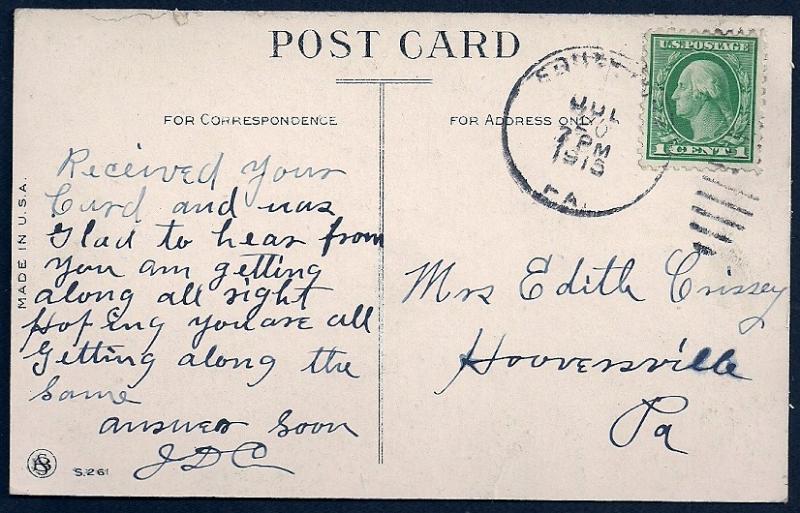 POST CARD
FOR CORRESPONDENCE
FOR ADDRESS ONLY
U.S. POSTAGE
1 CENTS 1
JUL
7 PM
PA.
MADE IN U.S.A.
Received Your
Card and was
Glad to hear from
You am getting
along all right
Hoping you are all
Getting along the
Same
answer soon
JDC
Mrs Edith Crissey
Hooversville
Pa
S.261